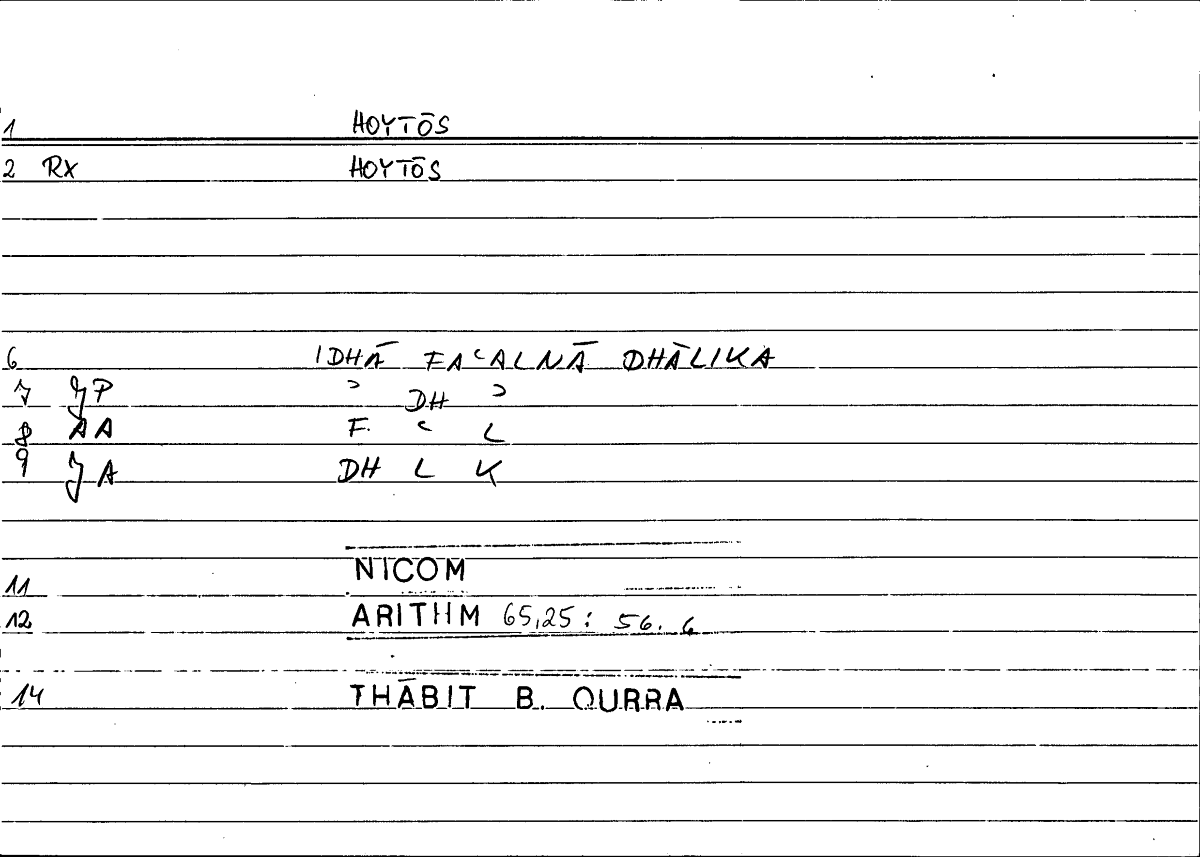 1 HOYTŌS
2 RX HOYTŌS
6 IDHĀ FAʿALNĀ DHĀLIKA
7 JP ʾ DH ʾ
8 AA F ʿ L
9 JA DH L K
11 NICOM
12 ARITHM 65,25 : 56. 6
14 THĀBIT B. QURRA